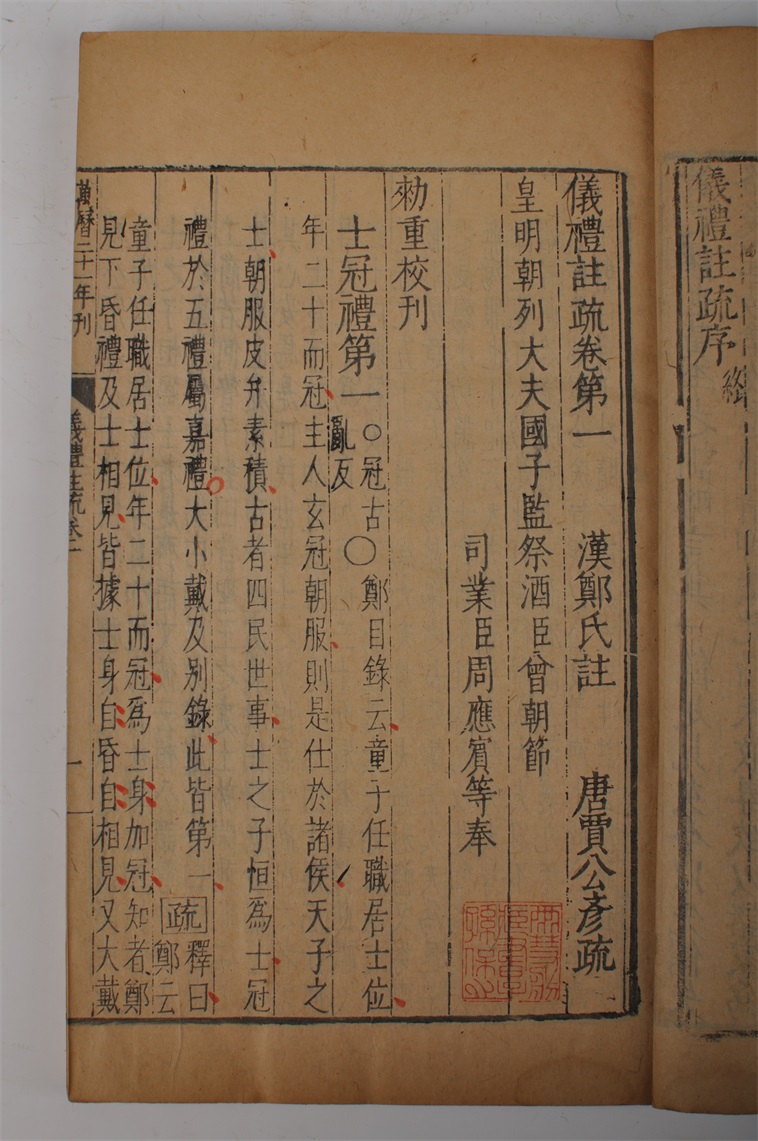 儀禮註疏序 終
儀禮註疏卷第一 漢鄭氏註 唐賈公彥疏
皇明朝列大夫國子監祭酒臣曾朝節
司業臣周應賓等奉
勑重校刊
士冠禮第一○冠古亂反○鄭目錄云童子任職居士位
年二十而冠主人玄冠朝服則是仕於諸侯天子之
士朝服皮弁素積古者四民世事士之子恒爲士冠
禮於五禮屬嘉禮大小戴及别錄此皆第一疏釋曰鄭云
童子任職居士位年二十而冠爲士身加冠知者鄭
見下昏禮及士相見皆據士身自昏自相見又大戴
萬曆二十一年刊 儀禮註疏卷一 一